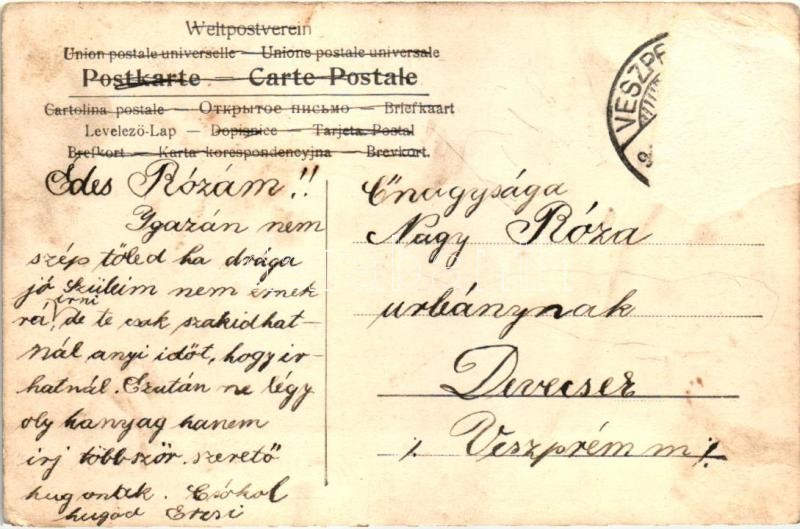 Weltpostverein
Union postale universelle — Unione postale universale
Postkarte — Carte Postale
Cartolina postale — Открытое письмо — Briefkaart
Levelező-Lap — Dopisnice — Tarjeta Postal
Brefkort — Karta korespondencyjna — Brevkort.
VESZPR
Édes Rózám!!
Igazán nem
szép tőled ha drága
jó Szüleim nem érnek
rá, irni de te csak szakidhat-
nál anyi időt, hogy ir-
hatnál. Ezután ne légy
oly hanyag hanem
irj többször. szerető
hugontak. Csókol
hugod Erzsi
Őnagysága
Nagy Róza
urhánynak
Devecser
/. Veszprém m /.